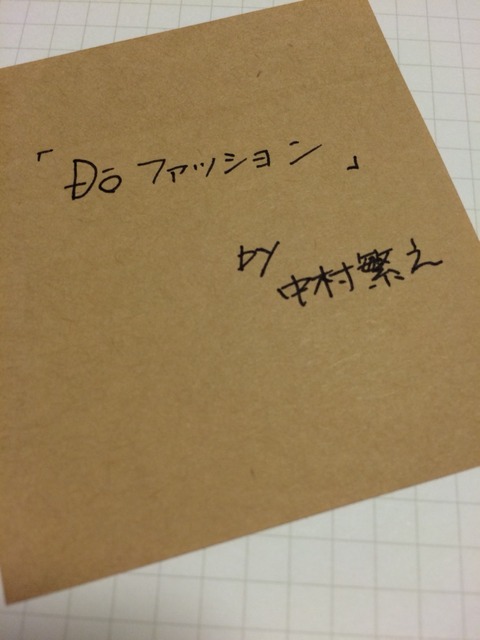 「Đōファッション」
by
中村繁之